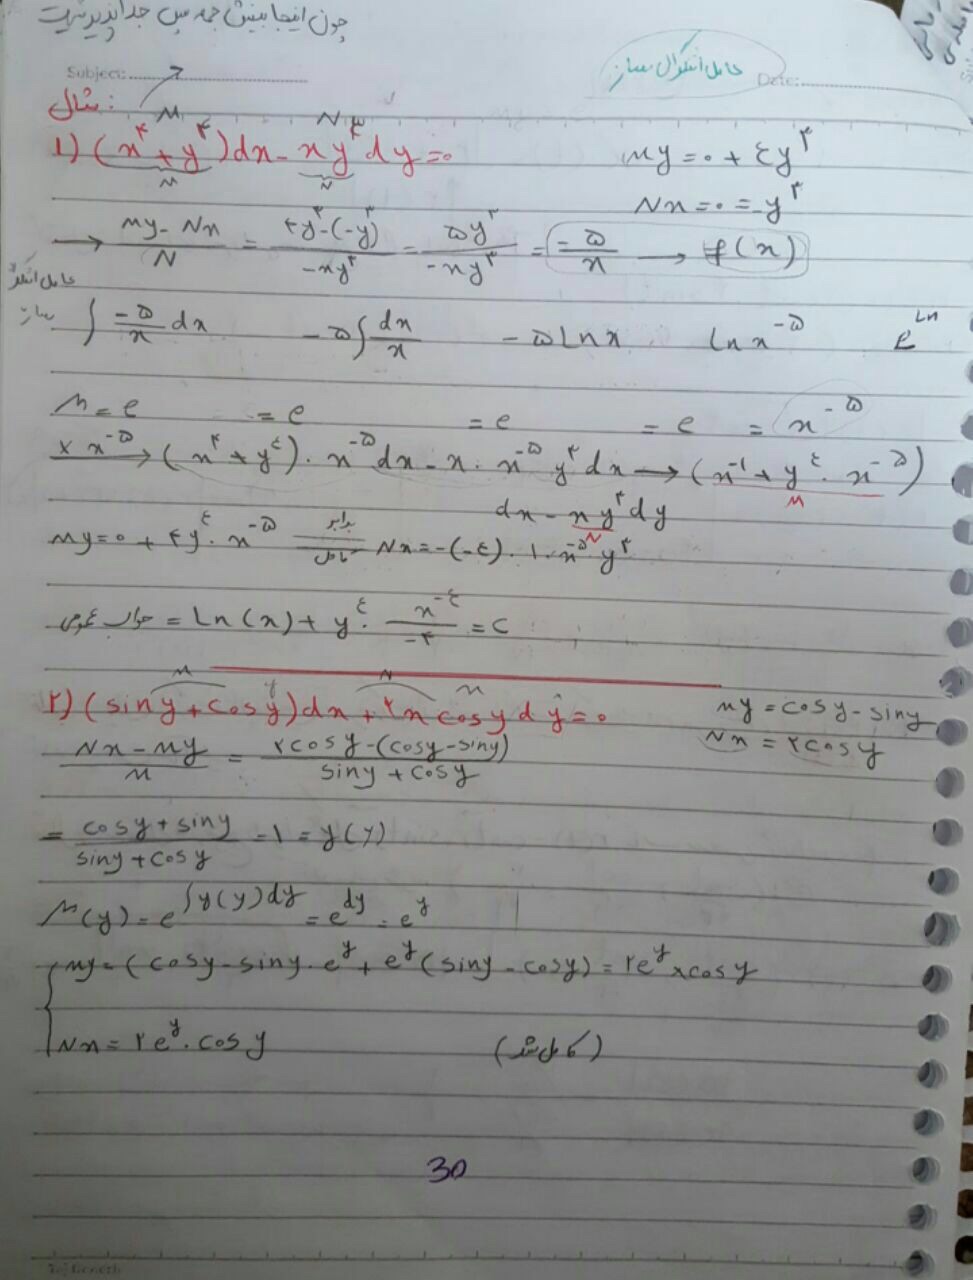 چون اینجا بینش جمع پس جداپذیر نیست
عامل انتگرال ساز
Subject: Date:
مثال:
M N
۱) (x⁴ + y⁴)dx - xy³dy = 0 My = 0 + 4y³
M N
Nx = 0 = -y³
→ (My - Nx)/N = (4y³ - (-y³))/(-xy³) = 5y³/(-xy³) = -5/x → f(x)
عامل انتگرال ساز
∫ -5/x dx -5∫ dx/x -5 Ln x Ln x⁻⁵ e^Ln
M = e = e = e = e = x⁻⁵
× x⁻⁵ → (x⁴ + y⁴) · x⁻⁵ dx - x · x⁻⁵ y³ dx → (x⁻¹ + y⁴ · x⁻⁵)
M
dx - xy³dy
N
My = 0 + 4y⁴ · x⁻⁵ برابر کامل Nx = -(-4) · 1 · x⁻⁵ y³
جواب عمومی = Ln(x) + y⁴ · x⁻⁴/-4 = C
M N
۲) (siny + cosy)dx + ۲x cosy dy = 0 My = cosy - siny
Nx = ۲cosy
(Nx - My)/M = (۲cosy - (cosy - siny))/(siny + cosy)
= (cosy + siny)/(siny + cosy) = 1 = y(y)
M(y) = e^∫y(y)dy = e^dy = e^y
My = (cosy - siny · e^y + e^y (siny - cosy) = ۲e^y × cosy
Nx = ۲e^y · cosy (کامل شد)
30